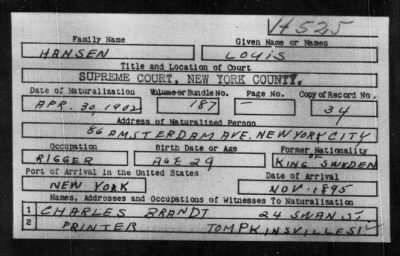 H525
Family Name Given Name or Names
HANSEN LOUIS
Title and Location of Court
SUPREME COURT, NEW YORK COUNTY.
Date of Naturalization Volume or Bundle No. Page No. Copy of Record No.
APR. 30, 1902 187 — 34
Address of Naturalized Person
86 AMSTERDAM AVE. NEW YORK CITY
Occupation Birth Date or Age Former Nationality
RIGGER AGE 29 KING OF SWEDEN
Port of Arrival in the United States Date of Arrival
NEW YORK NOV. 1895
Names, Addresses and Occupations of Witnesses To Naturalization
1 CHARLES BRANDT 24 SWAN ST.
2 PRINTER TOMPKINSVILLE S I